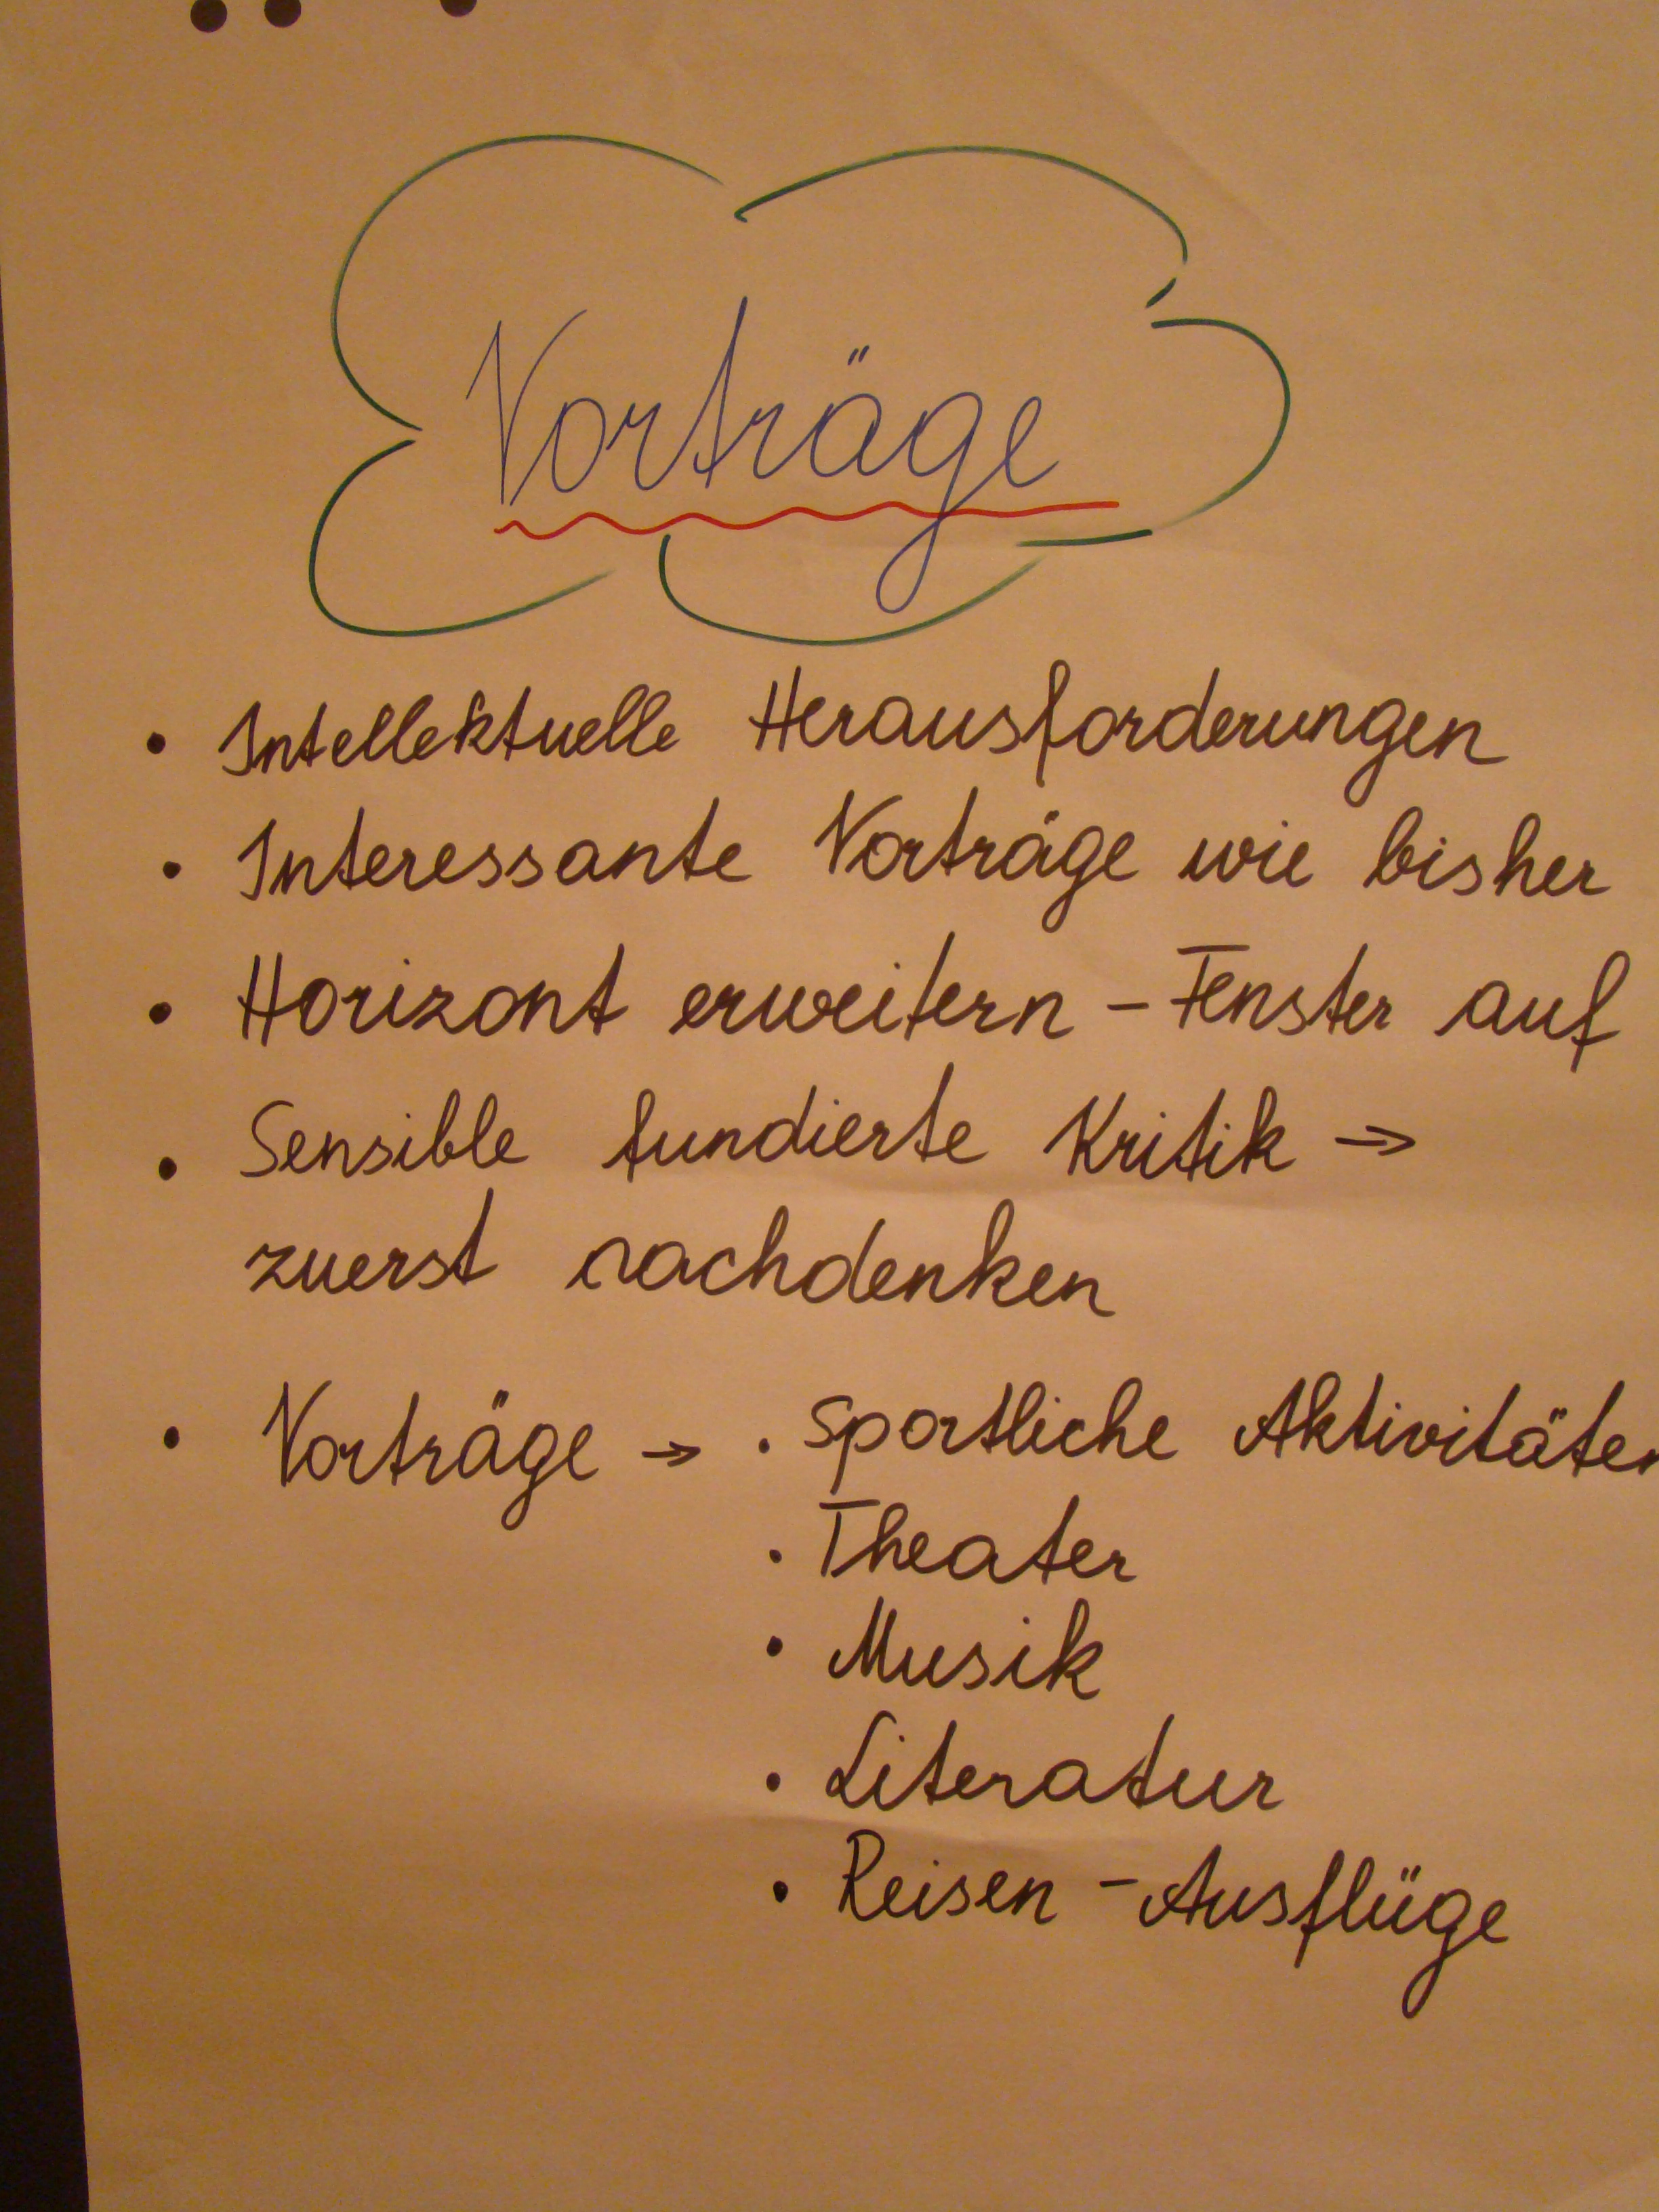 Vorträge
• Intellektuelle Herausforderungen
• Interessante Vorträge wie bisher
• Horizont erweitern – Fenster auf
• Sensible fundierte Kritik →
zuerst nachdenken
• Vorträge → • Sportliche Aktivitäten
• Theater
• Musik
• Literatur
• Reisen – Ausflüge